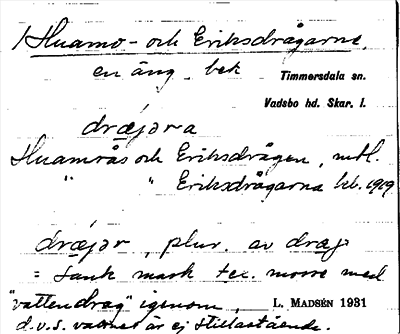 Huamo- och Eriksdrågarne,
en äng. bek
Timmersdala sn.
Vadsbo hd. Skar. l.
dræjǝra
Huamrås och Eriksdrågen, mtl.
" " Eriksdrågarna kb. 1919
dræjǝr, plur. av dræj
= sank mark tex. mosse med
"vattendrag" igenom,
L. MADSÉN 1931
d.v.s. vattnet är ej stillastående.